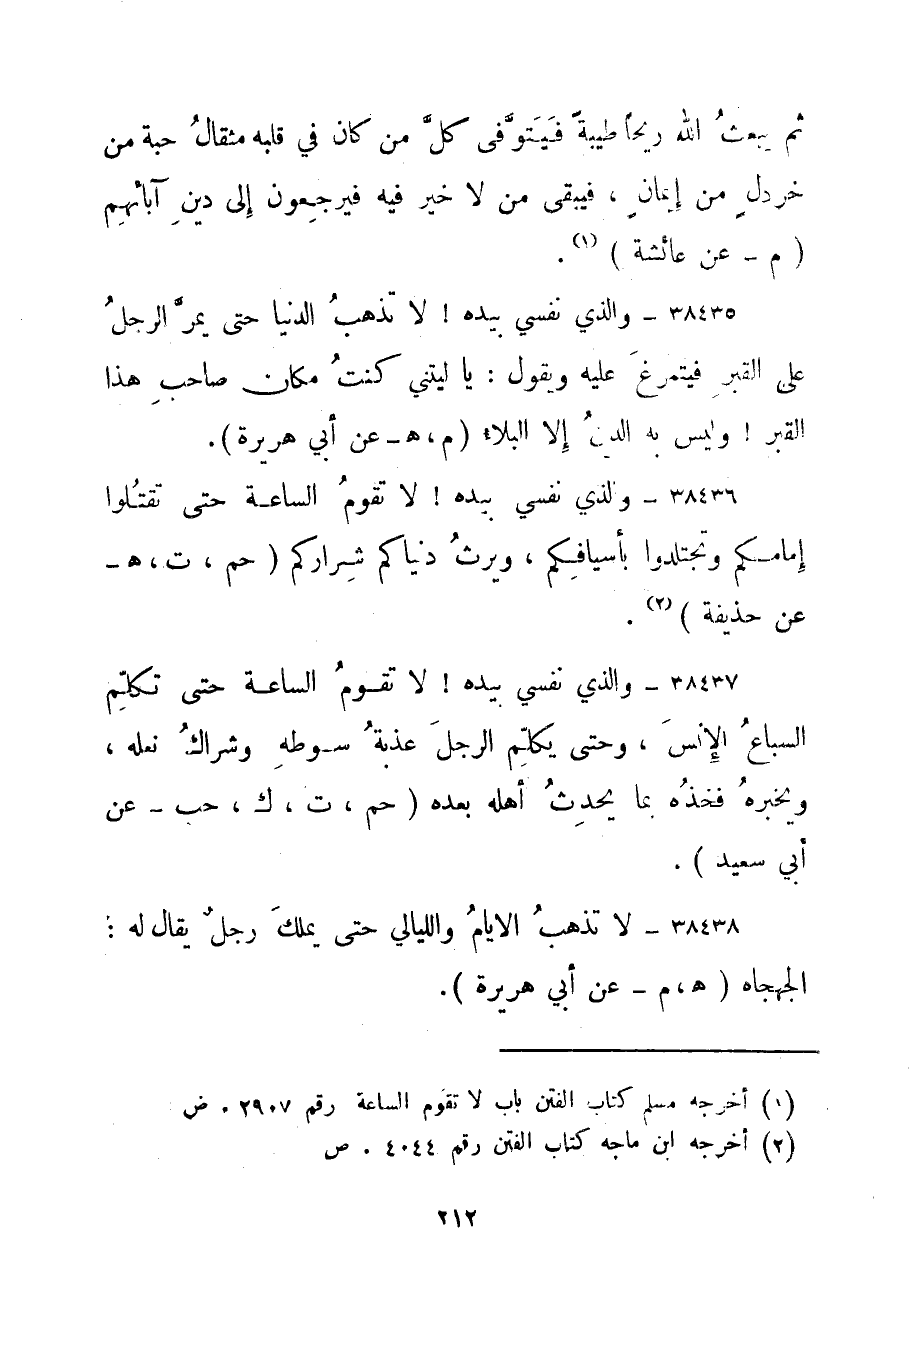 ثم يبعثُ الله ريحاً طيبةً فَيَتوَّفى كلَّ من كان في قلبه مثقالُ حبة من
خردلٍ من إيمانٍ ، فيبقى من لا خير فيه فيرجِعون إلى دينِ آبائهم
( م - عن عائشة ) (١) .
٣٨٤٣٥ - والذي نفسي بيده ! لا تذهبُ الدنيا حتى يمرَّ الرجلُ
على القبرِ فيتمرغَ عليه ويقول : يا ليتني كنتُ مكان صاحبِ هذا
القبر ! وليس به الدينُ إلا البلاء ( م ، ه - عن أبي هريرة ) .
٣٨٤٣٦ - والذي نفسي بيده ! لا تقومُ الساعة حتى تقتُلوا
إمامكم وتجتلدوا بأسيافِكم ، ويرثُ دنياكم شِراركم ( حم ، ت ، ه -
عن حذيفة ) (٢) .
٣٨٤٣٧ - والذي نفسي بيده ! لا تقومُ الساعة حتى تكلِّم
السباعُ الإِنسَ ، وحتى يكلِّم الرجلَ عذبةُ سوطهِ وشراكُ نعله ،
ويخبرهُ فخذُه بما يحدِثُ أهله بعده ( حم ، ت ، ك ، حب - عن
أبي سعيد ) .
٣٨٤٣٨ - لا تذهبُ الايامُ والليالي حتى يملكَ رجلٌ يقال له :
الجهجاه ( ه ، م - عن أبي هريرة ) .
(١) أخرجه مسلم كتاب الفتن باب لا تقوم الساعة رقم ٢٩٠٧ . ض
(٢) أخرجه ابن ماجه كتاب الفتن رقم ٤٠٤٤ . ص
٢١٢